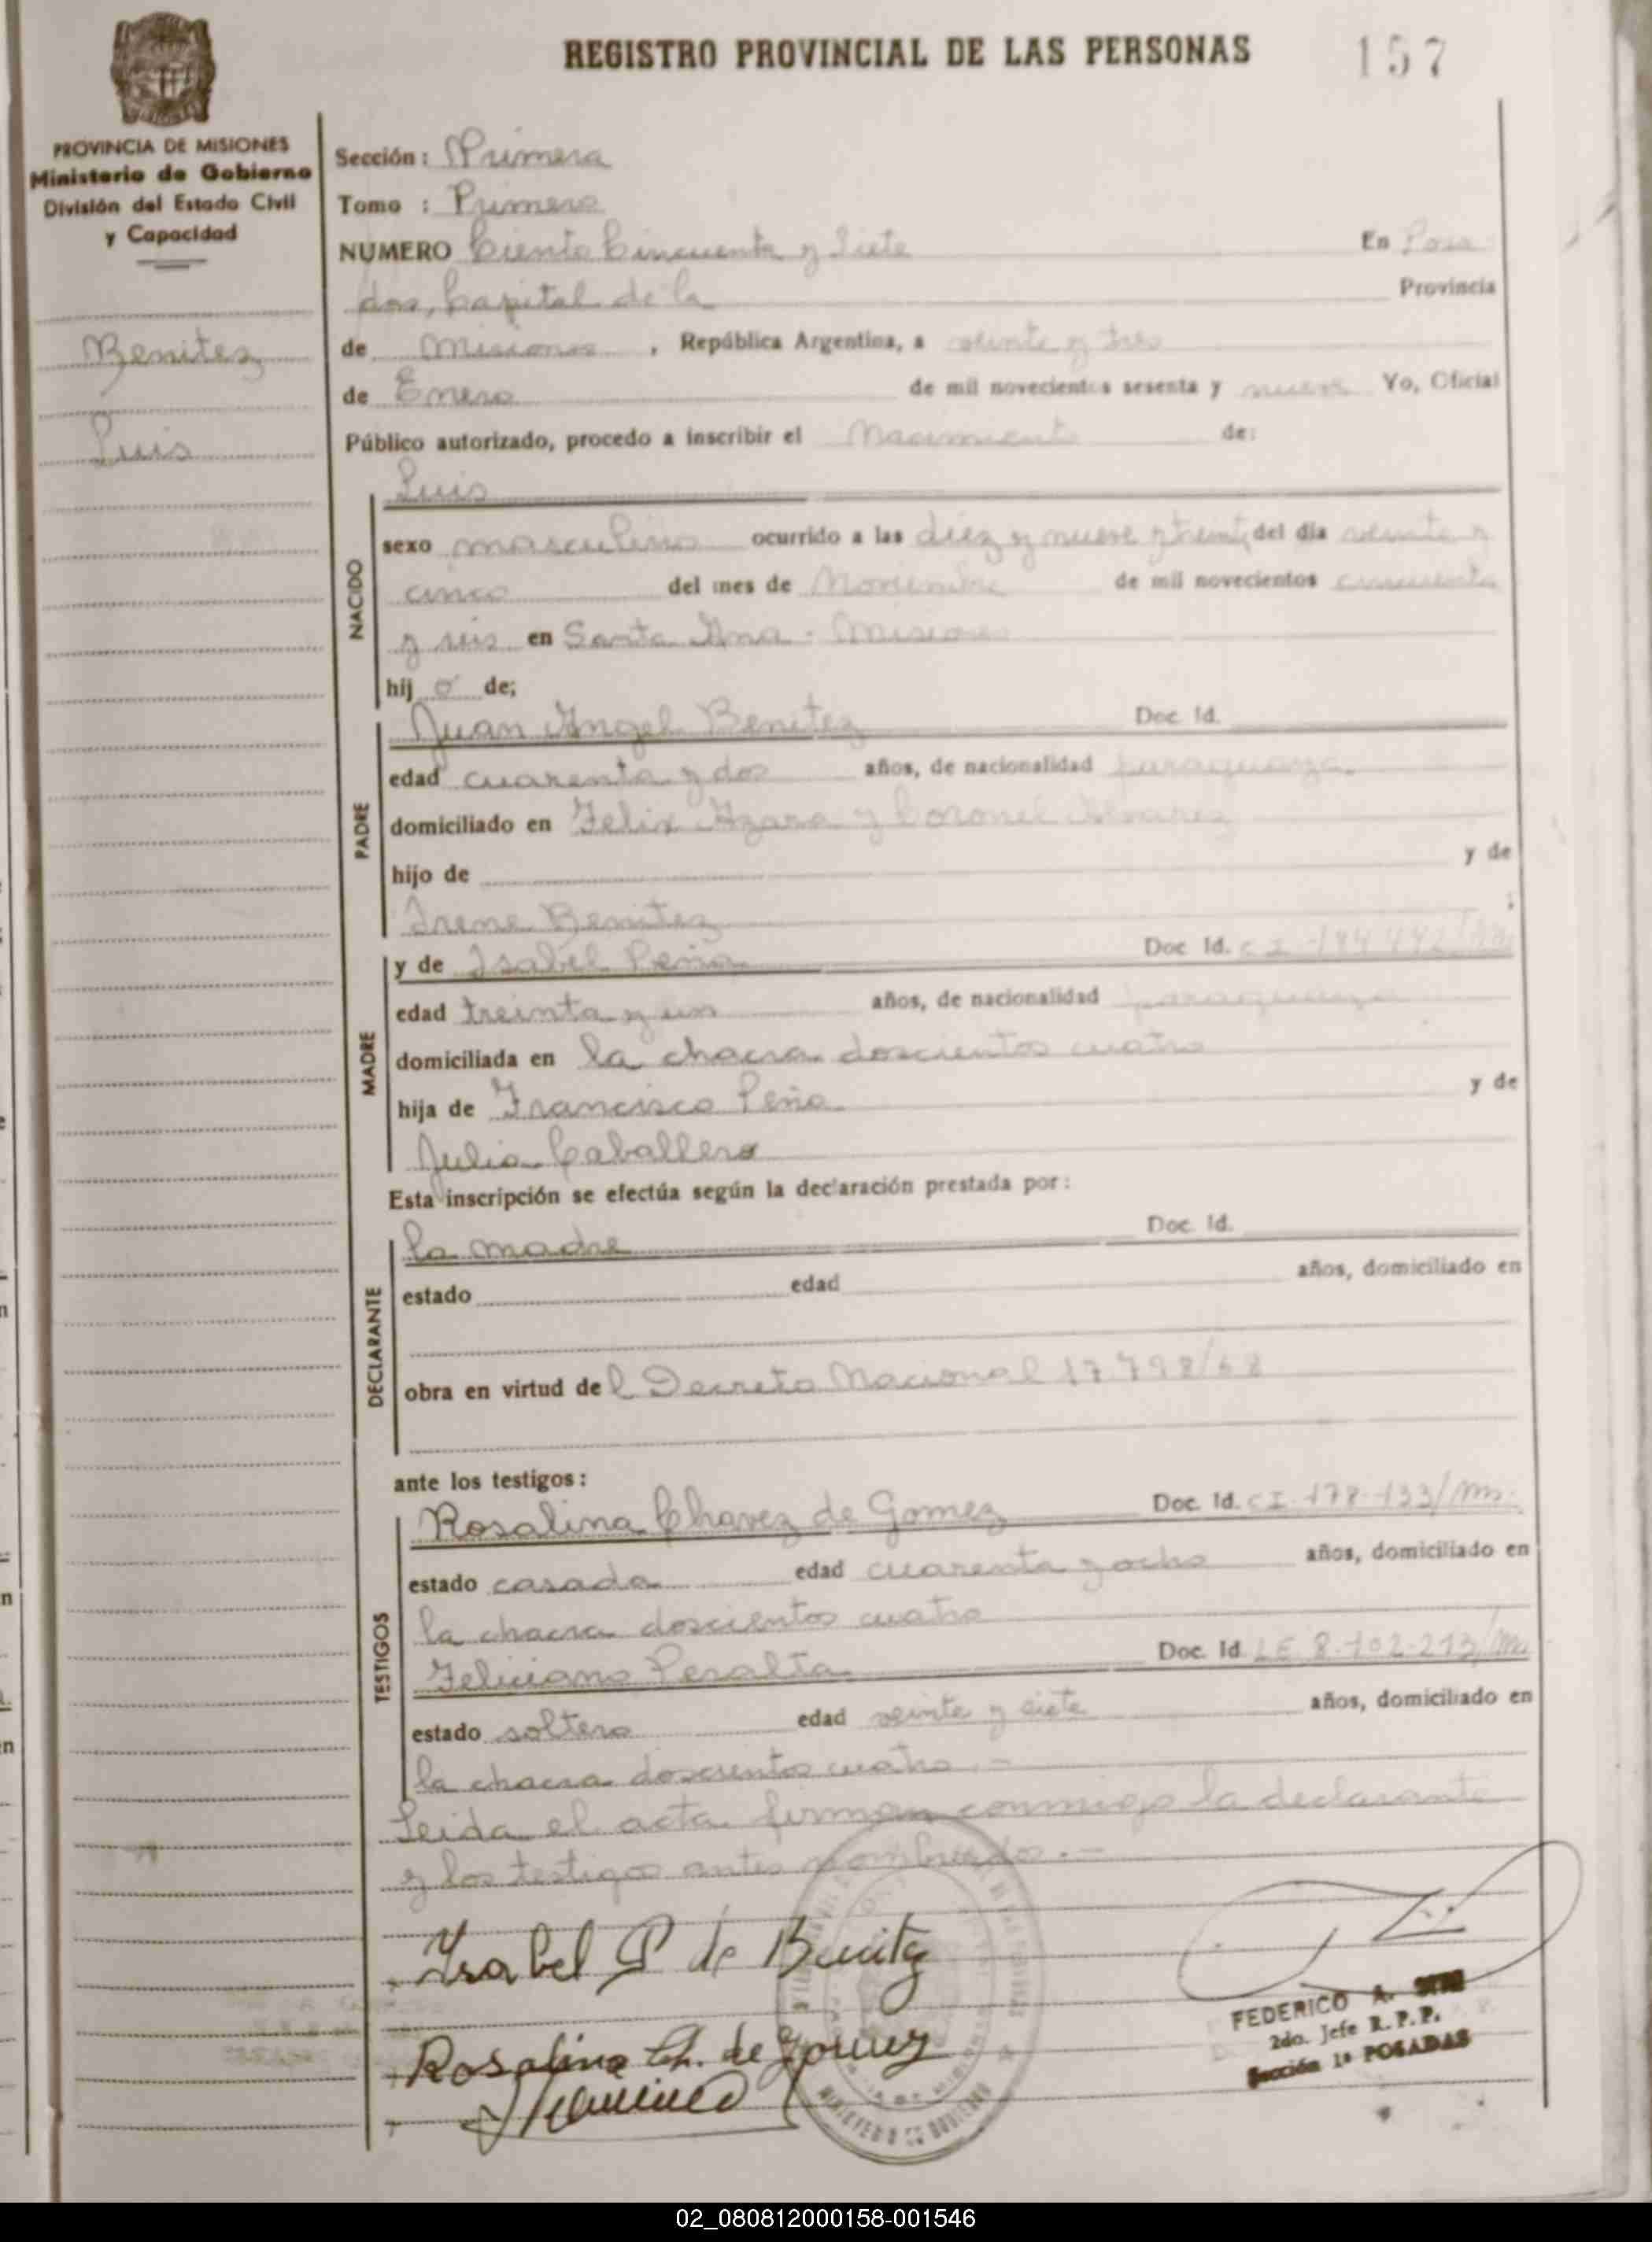 REGISTRO PROVINCIAL DE LAS PERSONAS
157
PROVINCIA DE MISIONES
Ministerio de Gobierno
División del Estado Civil
y Capacidad
Benitez
Luis
Sección: Primera
Tomo : Primero
NUMERO Ciento Cincuenta y Siete En Posa
das, Capital de la Provincia
de Misiones, República Argentina, a veinte y tres
de Enero de mil novecientos sesenta y nueve Yo, Oficial
Público autorizado, procedo a inscribir el Nacimiento de:
NACIDO
Luis
sexo masculino ocurrido a las diez y nueve y treinta del día veinte y
cinco del mes de Noviembre de mil novecientos cincuenta
y seis en Santa Ana - Misiones
hij o de;
PADRE
Juan Angel Benitez Doc. Id.
edad cuarenta y dos años, de nacionalidad paraguaya.
domiciliado en Felix Azara y Coronel Alvarez
hijo de y de
Irene Benitez
MADRE
y de Isabel Peña Doc. Id. C I
edad treinta y un años, de nacionalidad paraguaya
domiciliada en la chacra doscientos cuatro
hija de Francisco Peña y de
Julia Caballero
Esta inscripción se efectúa según la declaración prestada por:
DECLARANTE
la madre Doc. Id.
estado edad años, domiciliado en
obra en virtud del Decreto Nacional 17.798/68
ante los testigos:
TESTIGOS
Rosalina Chavez de Gomez Doc. Id. CI. 178-133/Ms.
estado casada edad cuarenta y ocho años, domiciliado en
la chacra doscientos cuatro
Feliciano Peralta Doc. Id. LE 8.102.213/Ms
estado soltero edad veinte y siete años, domiciliado en
la chacra doscientos cuatro. -
Leida el acta firman conmigo la declarante
y los testigos antes nombrados. -
Isabel P de Benitez
Rosalina Ch. de Gomez
FEDERICO A.
2do. Jefe R.P.P.
Sección 1ª POSADAS
MINISTERIO DE GOBIERNO
02_080812000158-001546